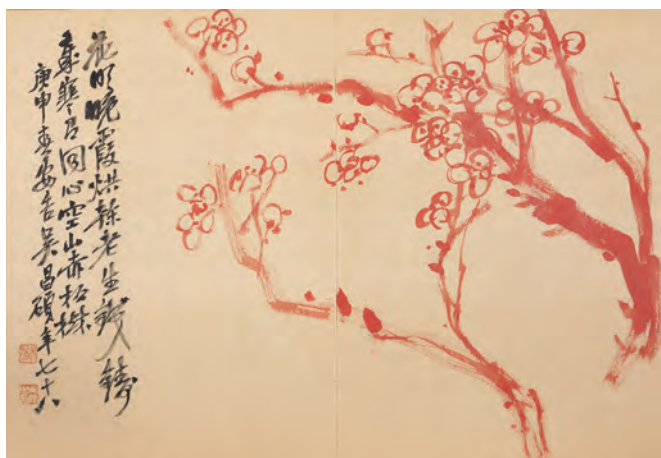 花明晚霞烘幹老生鐵鑄
歲寒同心空山赤松樹
庚申春安吉吳昌碩年七十八